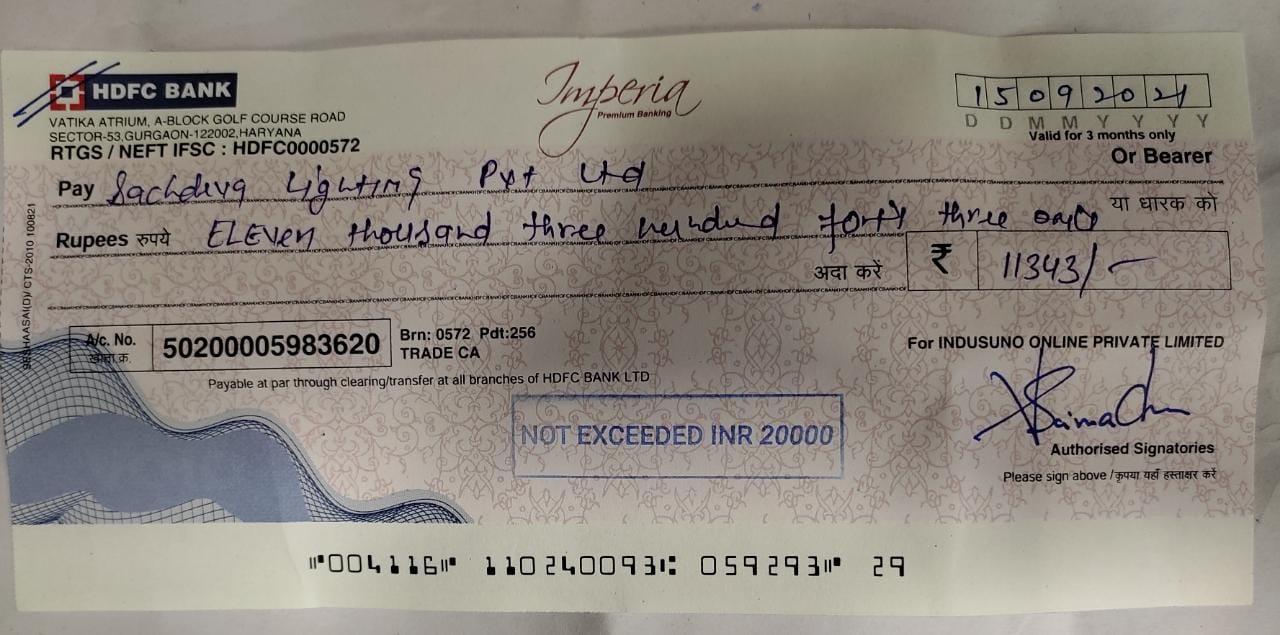 HDFC BANK
VATIKA ATRIUM, A-BLOCK GOLF COURSE ROAD
SECTOR-53,GURGAON-122002,HARYANA
RTGS / NEFT IFSC : HDFC0000572
Imperia
Premium Banking
15092021
D D M M Y Y Y Y
Valid for 3 months only
Or Bearer
Pay Sachdeva Lighting Pvt Ltd
या धारक को
Rupees रुपये ELEVen thousand three hundred forty three only
अदा करें ₹ 11343/-
A/c. No. 50200005983620
खाता क्र.
Brn: 0572 Pdt:256
TRADE CA
Payable at par through clearing/transfer at all branches of HDFC BANK LTD
NOT EXCEEDED INR 20000
For INDUSUNO ONLINE PRIVATE LIMITED
Authorised Signatories
Please sign above /कृपया यहाँ हस्ताक्षर करें
CTS-2010 100821
⑈004116⑈ 110240093⑆ 059293⑈ 29